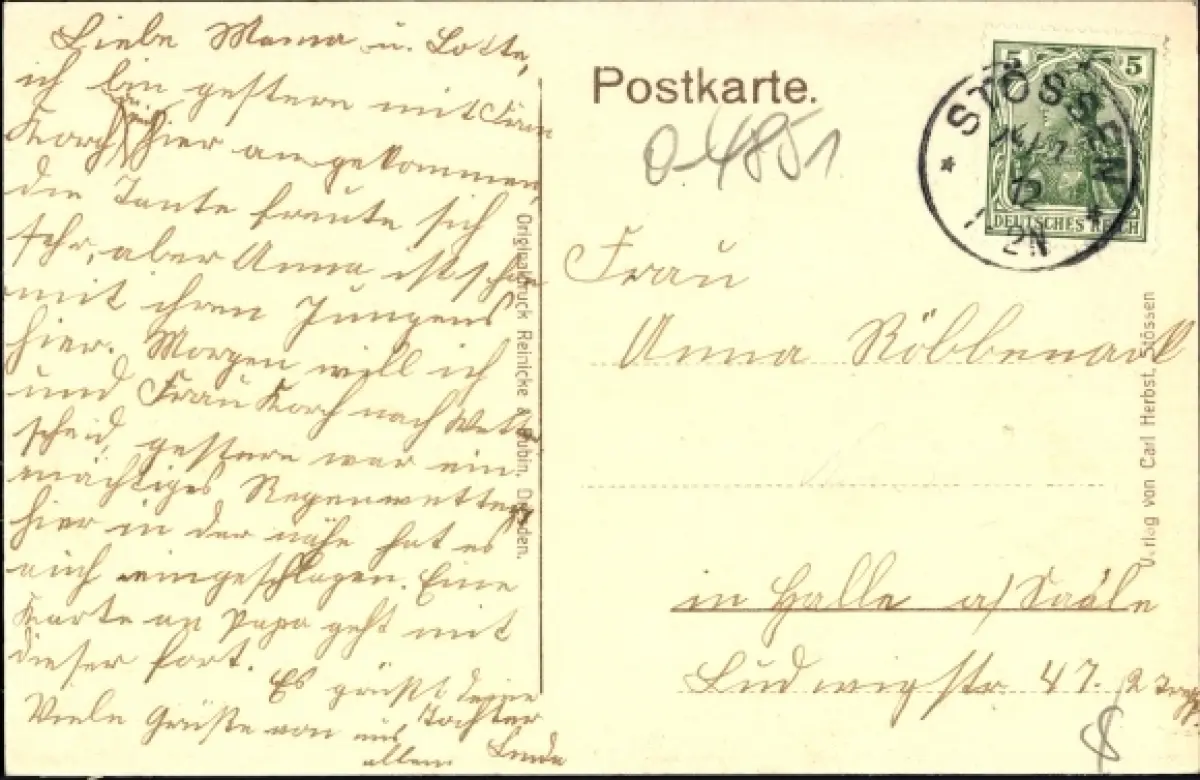 Liebe Mama u. Lotte,
ich bin gestern mit Frau
Korch hier angekommen,
die Tante freute sich
sehr, aber Anna ist schon
mit ihren Jungens
hier. Morgen will ich
und Frau Korch nach
scheid, gestern war ein
mächtiges Regenwetter
hier in der nähe hat es
auch eingeschlagen. Eine
Karte an Papa geht mit
dieser fort.
Es grüßt Deine
Tochter
Viele Grüße von uns
allen
Originaldruck Reinicke & Rubin, Dresden.
Postkarte.
0-4851
STÖSSEN
12
2N
5 5
DEUTSCHES REICH
Frau
Anna Röbbenack
in Halle a/Saale
Ludwigstr 47. 2
Verlag von Carl Herbst, Stössen